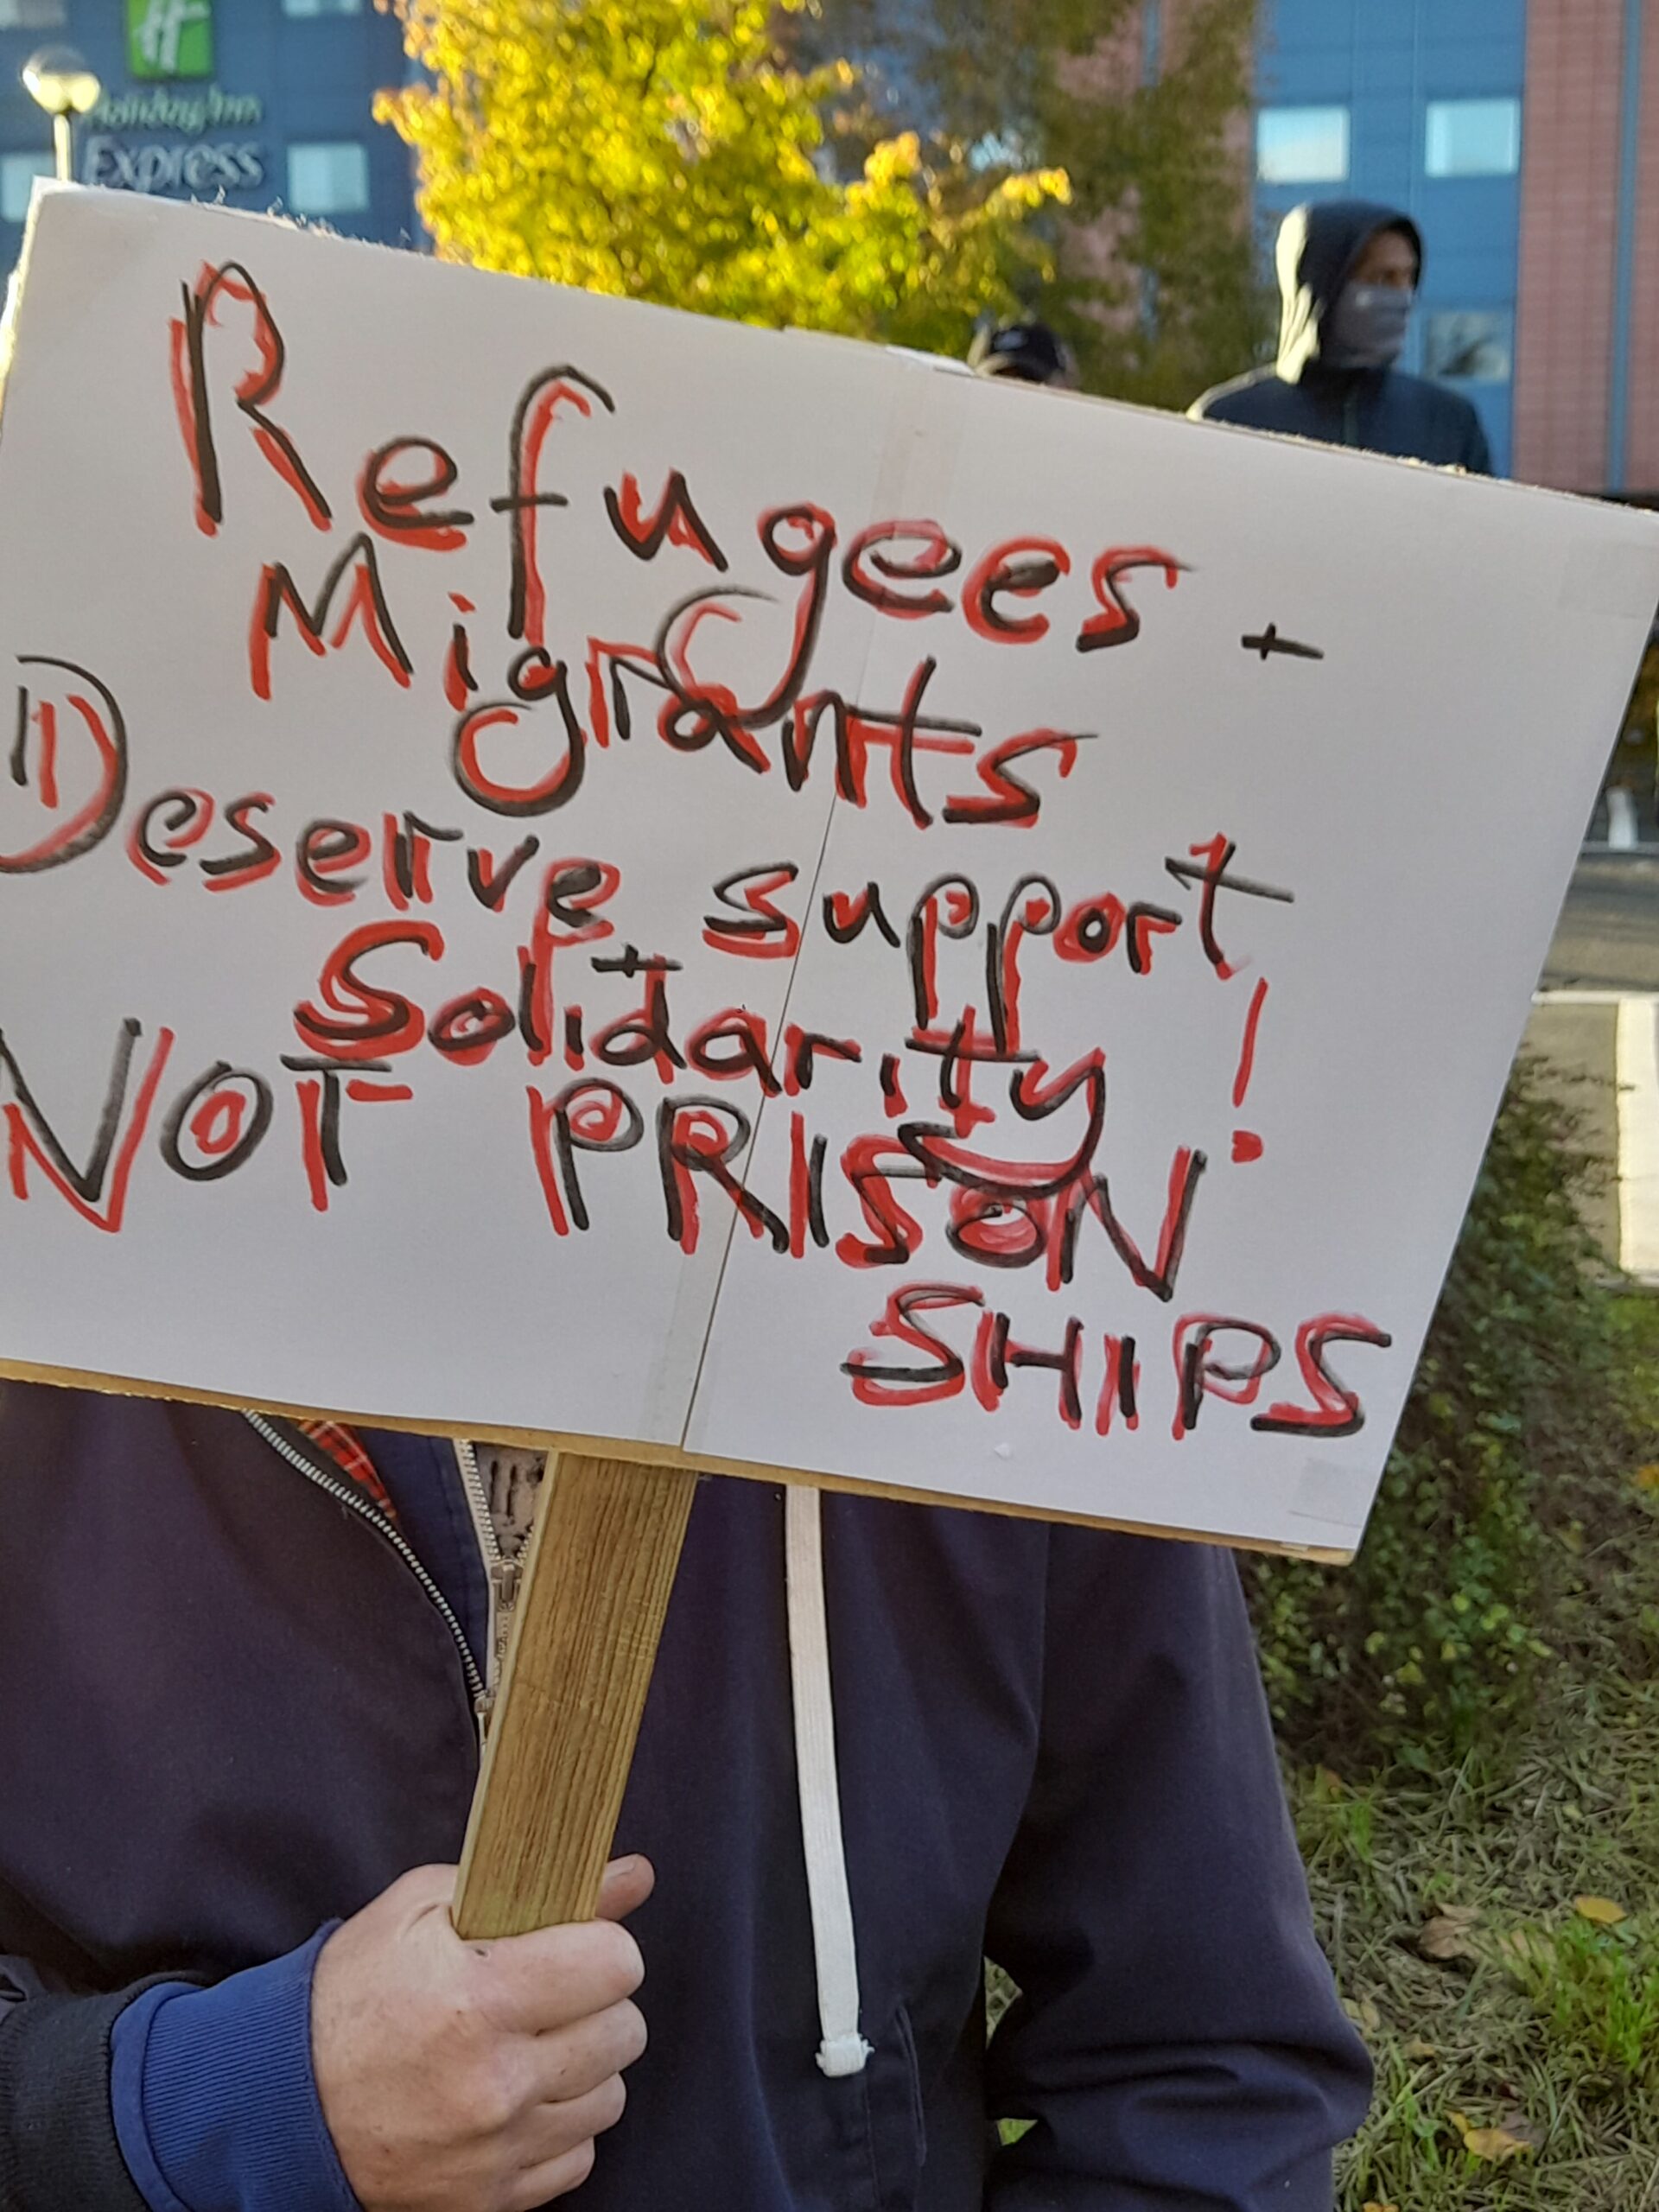 Holiday Inn
Express
Refugees +
Migrants
Deserve support
+
Solidarity !
NOT PRISON
SHIPS